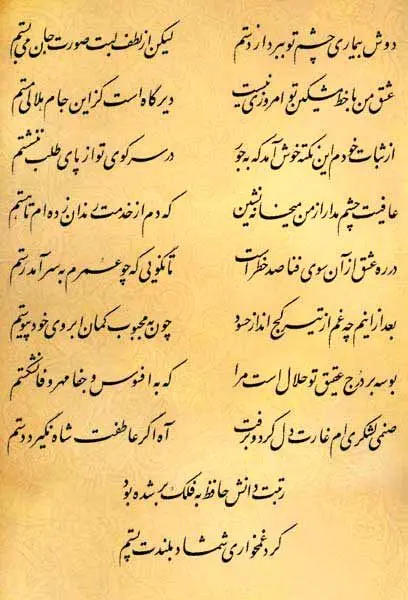 دوش بیماری چشم تو ببرد از دستم لیکن از لطف لبت صورت جان می‌بستم
عشق من با خط مشکین تو امروزی نیست دیرگاه است کز این جام هلالی مستم
از ثبات خودم این نکته خوش آمد که به جور در سر کوی تو از پای طلب ننشستم
عافیت چشم مدار از من میخانه نشین که دم از خدمت رندان زده‌ام تا هستم
در ره عشق از آن سوی فنا صد خطر است تا نگویی که چو عمرم به سر آمد رستم
بعد از اینم چه غم از تیر کج انداز حسود چون به محبوب کمان ابروی خود پیوستم
بوسه بر درج عقیق تو حلال است مرا که به افسوس و جفا مهر وفا نشکستم
صنمی لشکری‌ام غارت دل کرد و برفت آه اگر عاطفت شاه نگیرد دستم
رتبت دانش حافظ به فلک بر شده بود
کرد غمخواری شمشاد بلندت پستم